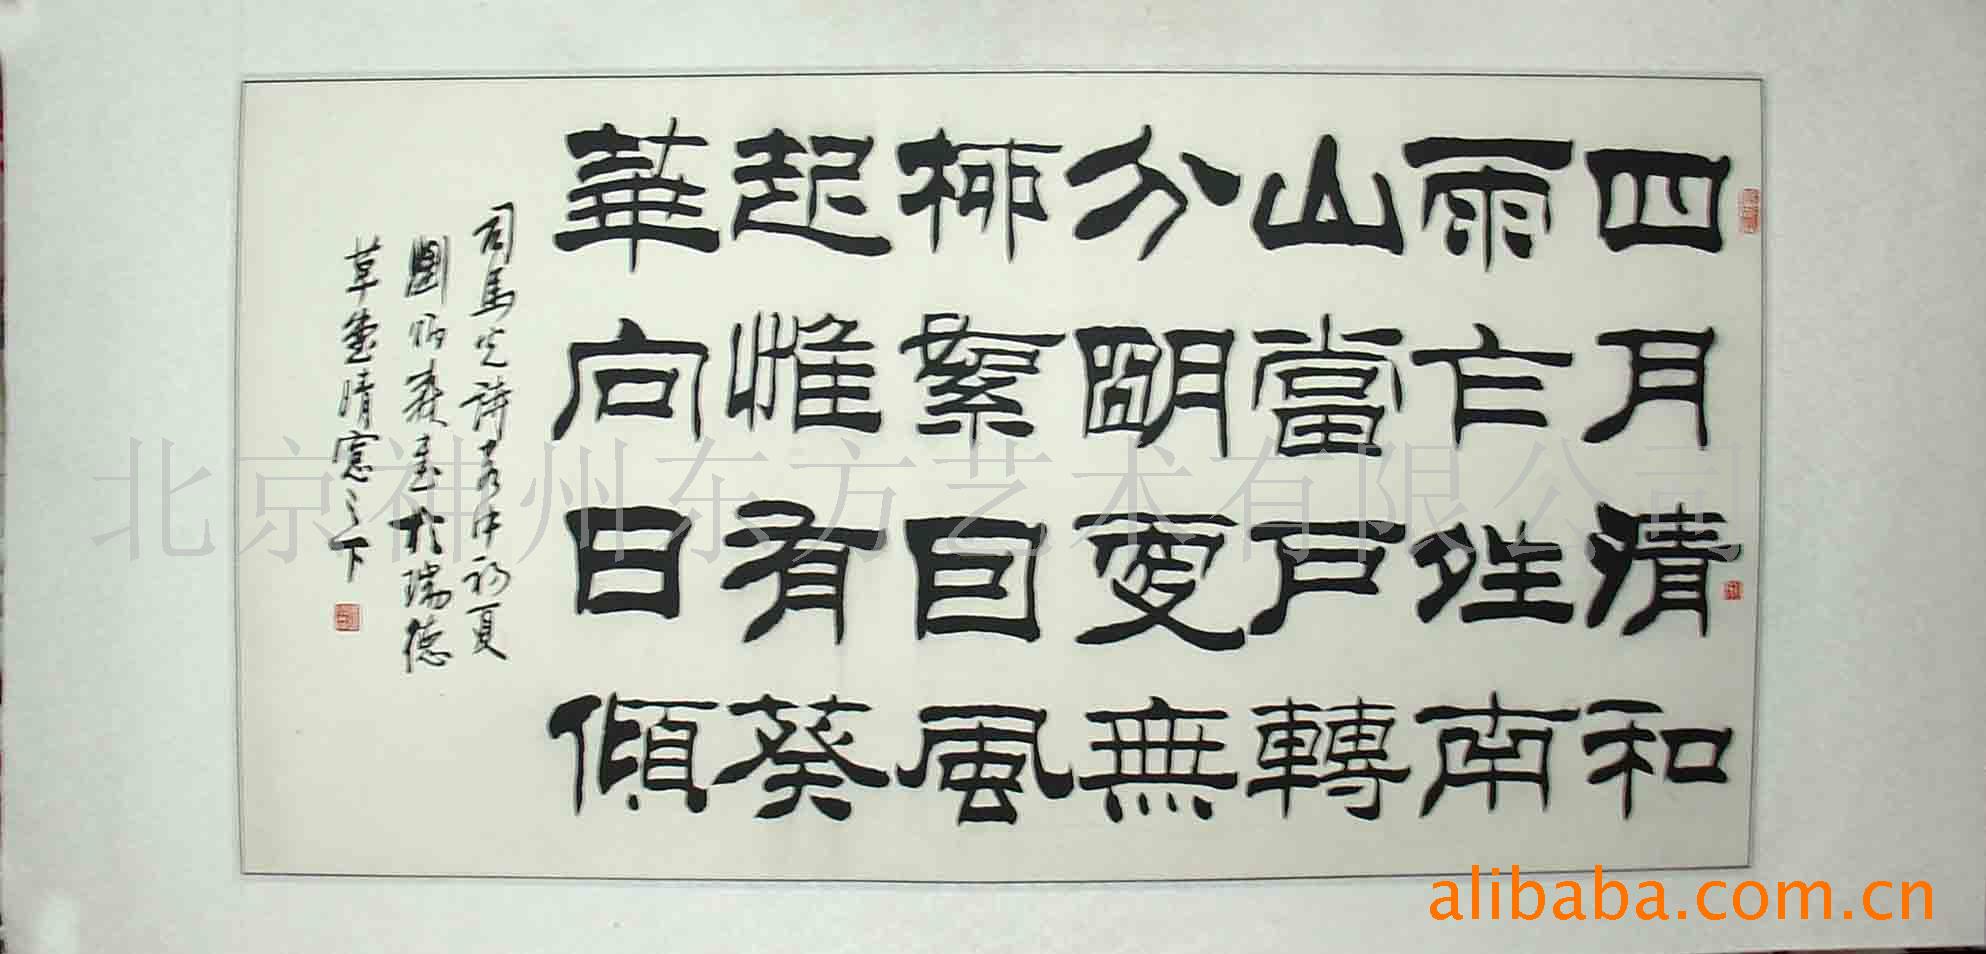 四月清和
雨乍夝南
山當戶轉
分朙更無
柳絮囙風
起惟有葵
華向日傾
司馬光詩客中初夏
劉炳森書於瑞德
草堂晴窓之下
北京神州东方艺术有限公司
alibaba.com.cn